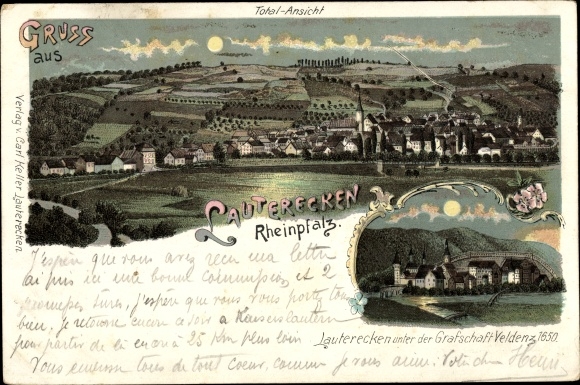 Total-Ansicht
Gruss
aus
Verlag v. Carl Keller Lauterecken.
Lauterecken
Rheinpfalz.
J'espère que vous avez reçu ma lettre
ai pris ici une bonne commission et 2
promesses sures, j'espère que vous vous portez tous
bien, je retourne encore ce soir a Kaiserslautern
pour partir de là encore à 25 Km plus loin
Vous embrasse tous de tout coeur, comme je vous aime. Votre cher Henri
Lauterecken unter der Grafschaft Veldenz 1650.